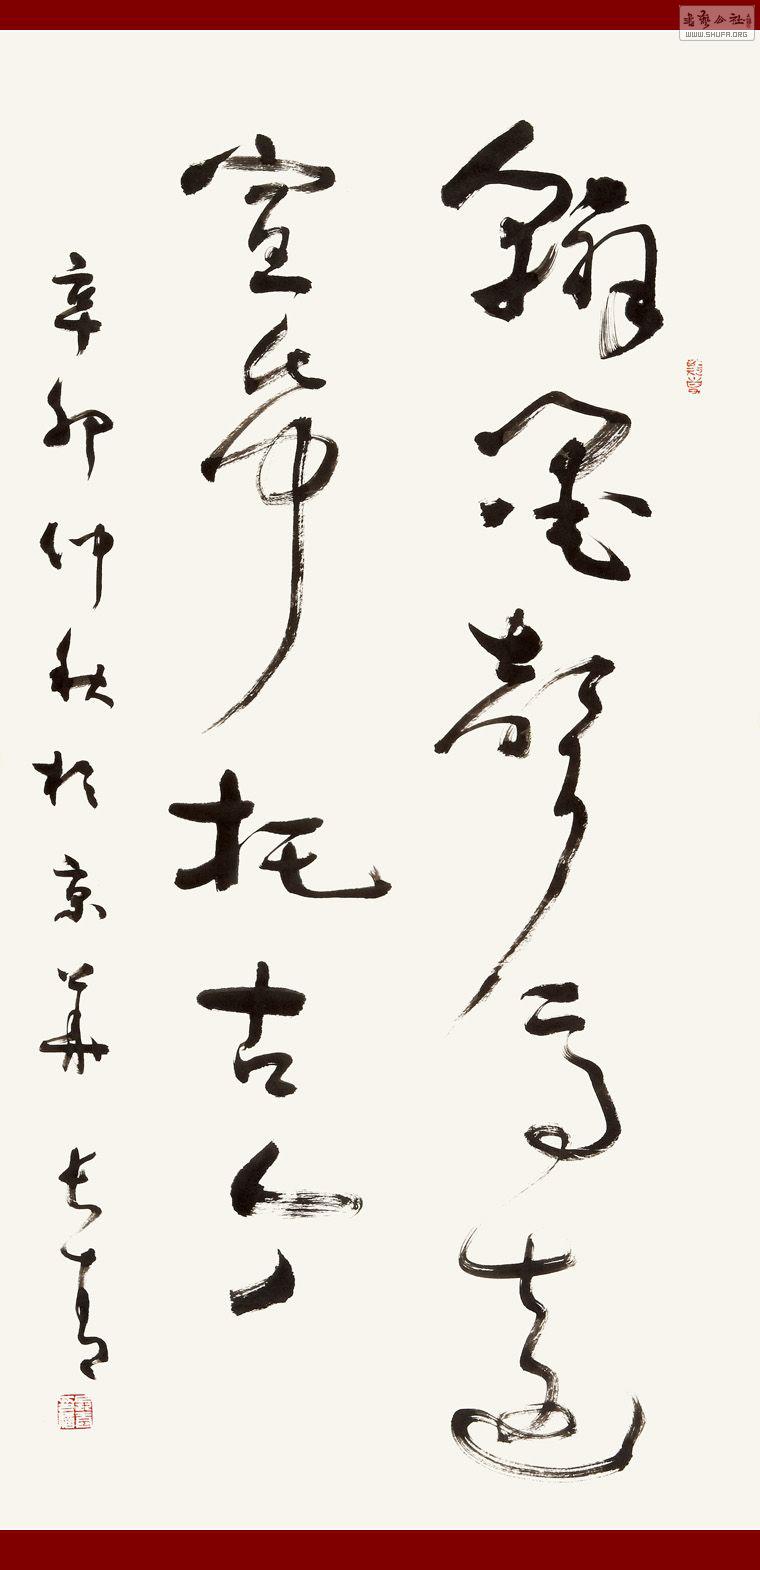 翰墨声焉远
宣纸托古今
辛卯仲秋於京華 长青
书艺公社
WWW.SHUFA.ORG